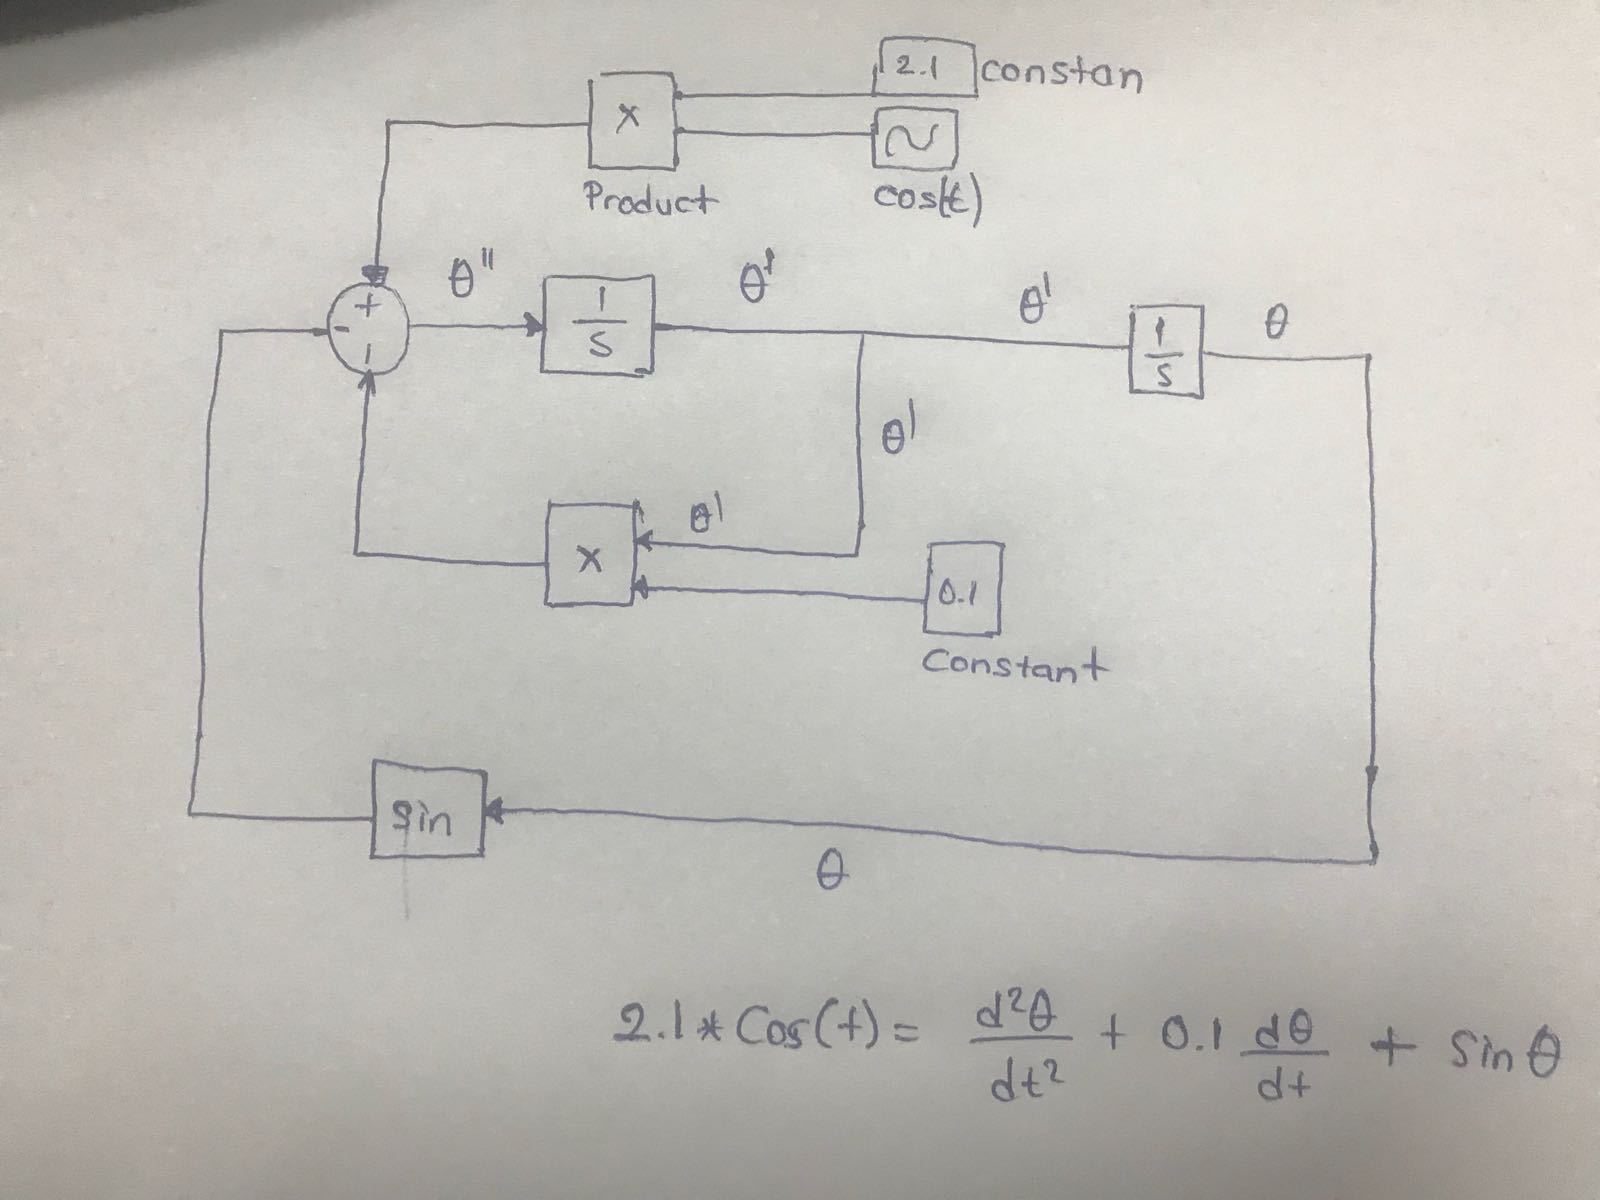 2.1 constan
x
Product
cos(t)
θ''
θ'
θ'
θ
+
-
-
1
s
1
s
θ'
θ'
x
0.1
Constant
sin
θ
2.1 * Cos(t) = d²θ/dt² + 0.1 dθ/dt + sin θ